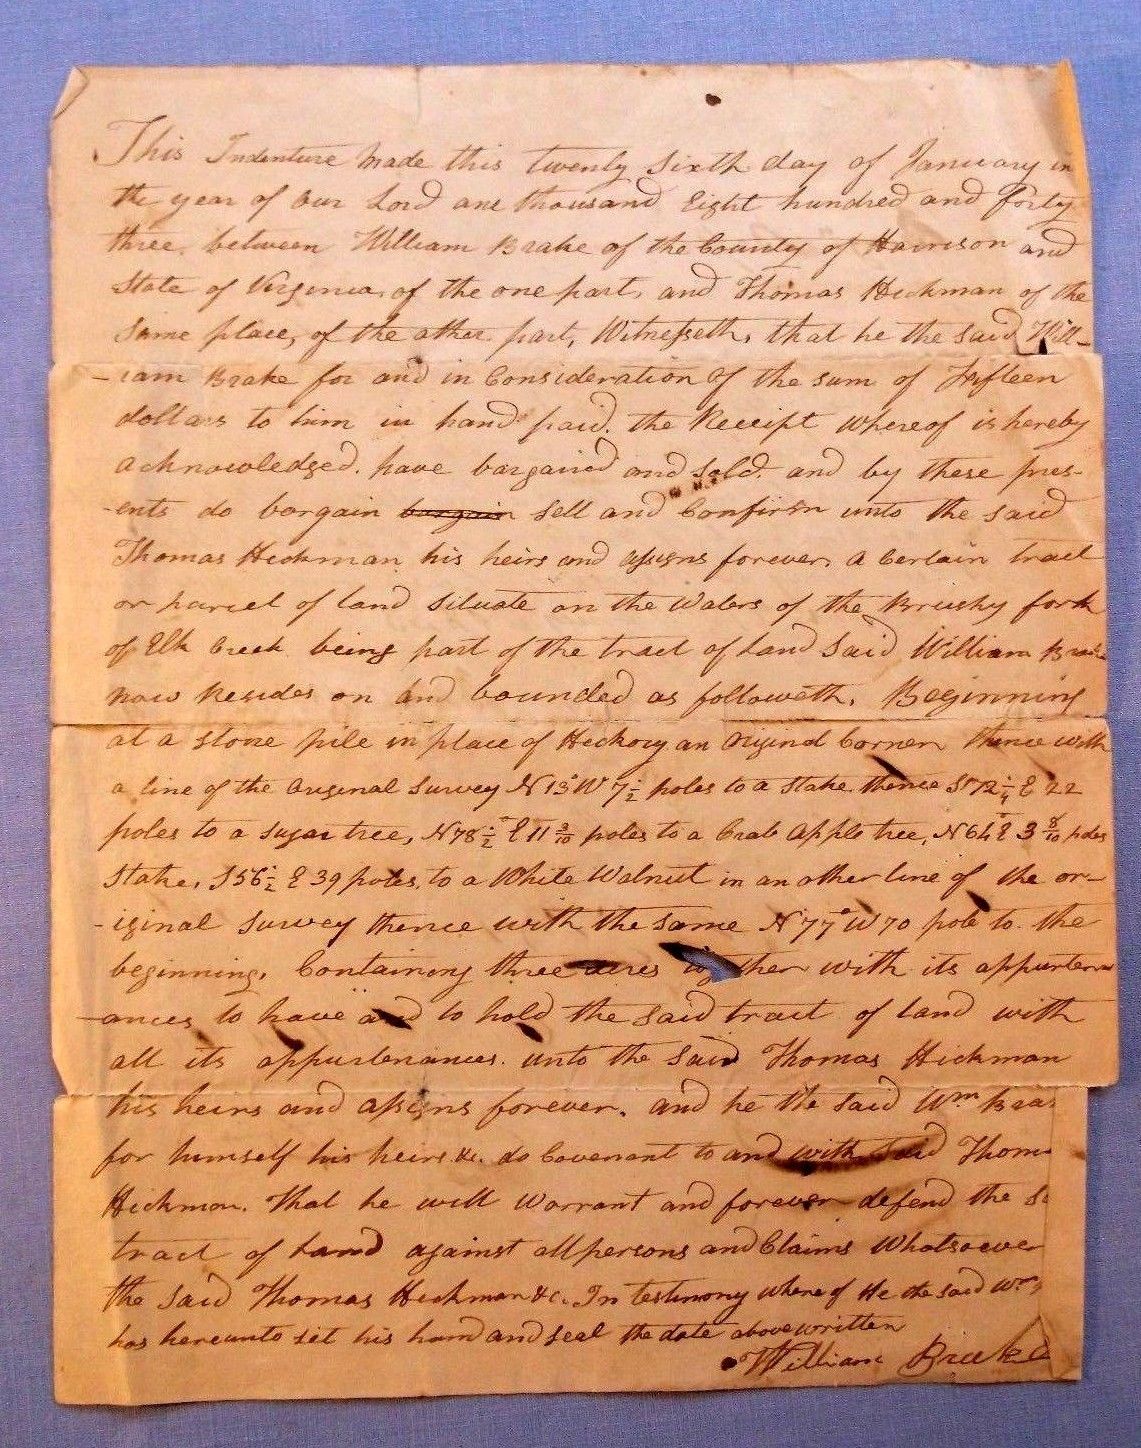 This Indenture Made this twenty Sixth day of January in
the year of our Lord one thousand Eight hundred and forty
three. between William Brake of the County of Harrison and
State of Virginia, of the one part, and Thomas Hickman of the
Same place, of the other part, Witnesseth, that he the said Will-
-iam Brake for and in Consideration of the sum of Fifteen
dollars to him in hand paid. the Receipt whereof is hereby
acknowledged. have bargained and sold. and by these pres-
-ents do bargain bargain Sell and Confirm unto the said
Thomas Hickman his heirs and assigns forever, a Certain tract
or parcel of land Situate on the Waters of the Brushy fork
of Elk Creek being part of the tract of Land Said William
now Resides on and bounded as followeth. Beginning
at a stone pile in place of Hickory an Original Corner thence with
a line of the Original Survey N 13° W 7 1/2 poles to a Stake thence S 72 1/4 E 22
poles to a Sugar tree, N 78 1/2 E 11 3/10 poles to a Crab Apple tree, N 64 E 3 8/10 poles
Stake, S 56 1/2 E 39 poles, to a White Walnut in another line of the or-
-iginal Survey thence with the same N 77° W 70 pole to the
beginning. Containing three acres together with its appurten
-ances to have and to hold the said tract of land with
all its appurtenances. unto the said Thomas Hickman
his heirs and assigns forever. and he the said Wm Bra
for himself his heirs &c. do Covenant to and with said Thom
Hickman. That he will Warrant and forever defend the S
tract of Land against all persons and Claims Whatsoever
the said Thomas Hickman &c. In testimony where of He the said Wm
has hereunto set his hand and seal the date above written
William Brake